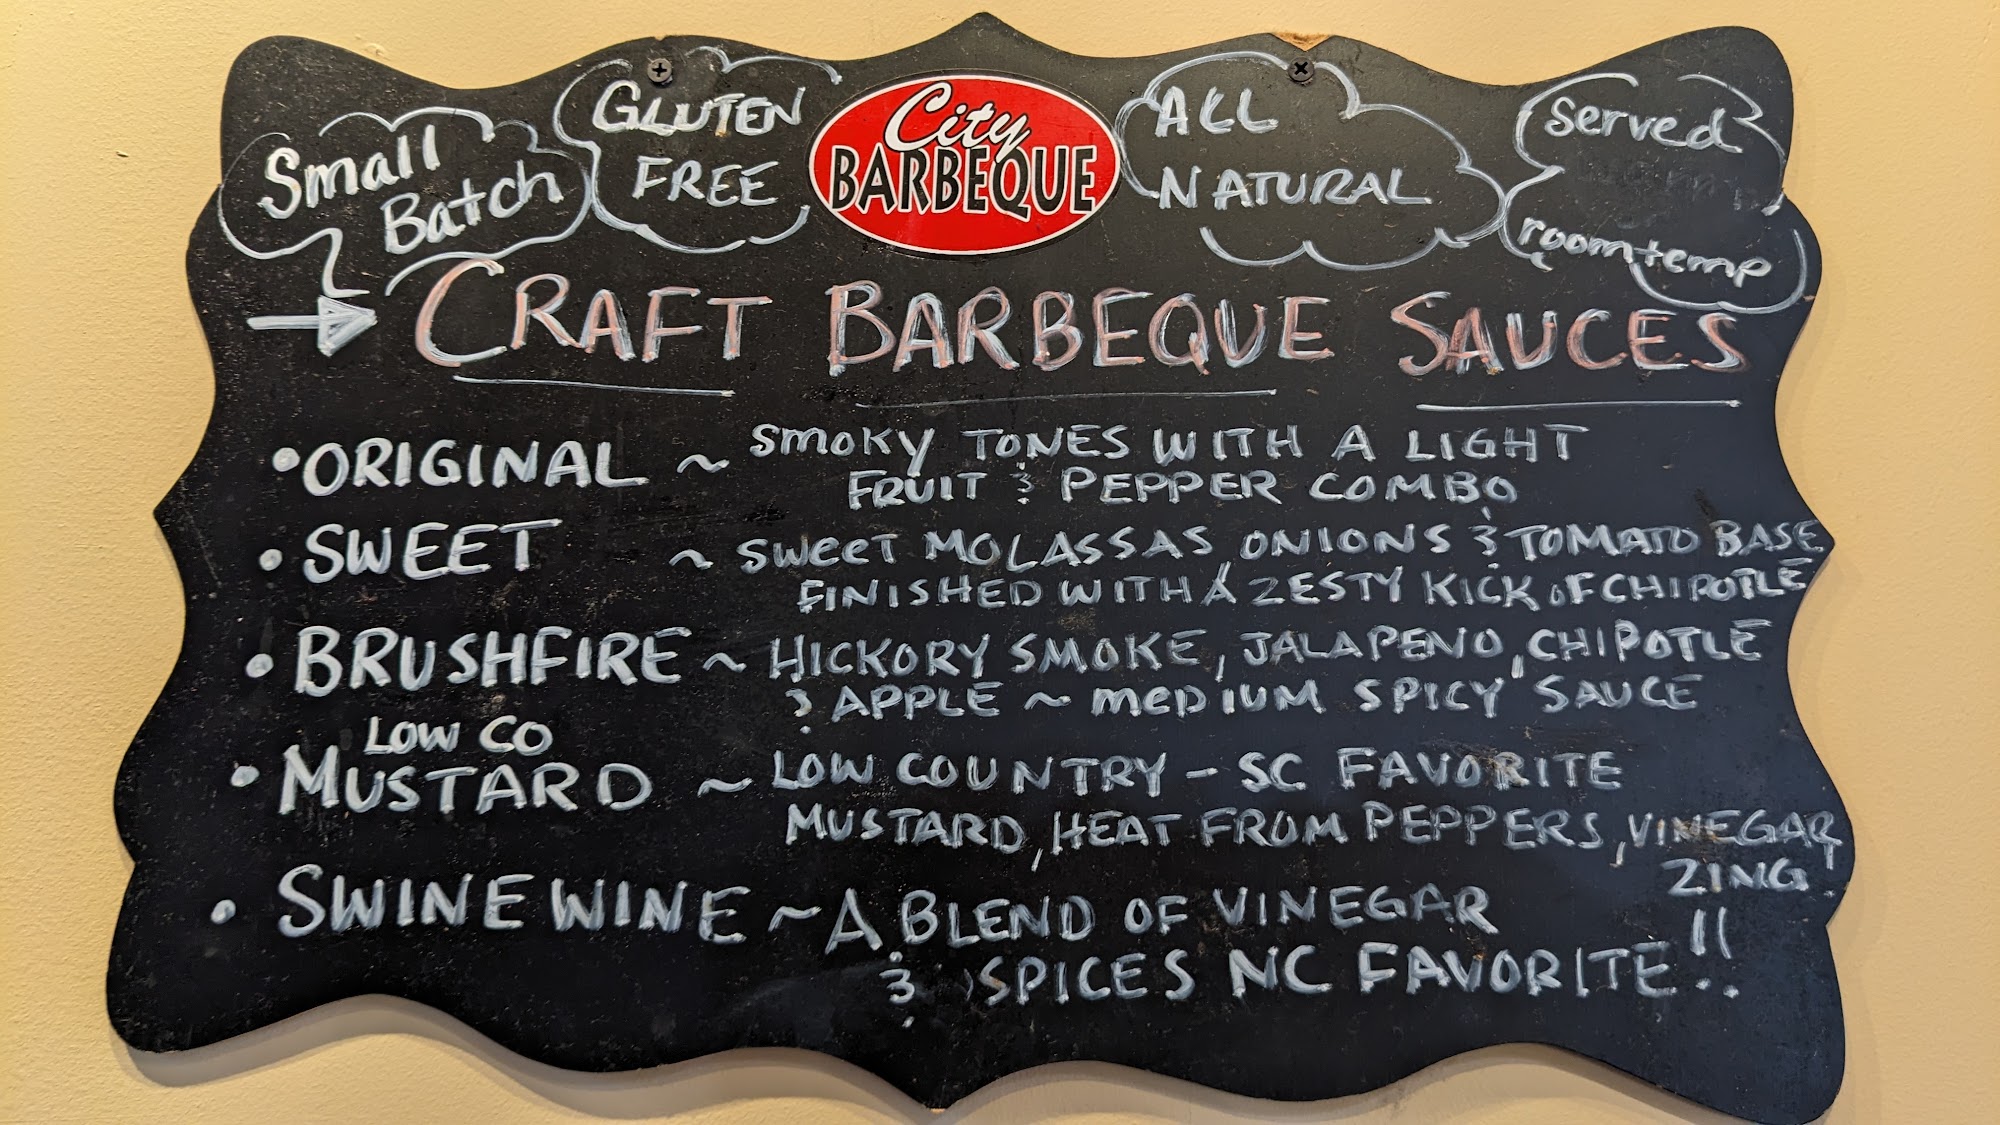 Small
Batch
GLUTEN
FREE
City
BARBEQUE
ALL
NATURAL
Served
room temp
CRAFT BARBEQUE SAUCES
• ORIGINAL ~ SMOKY TONES WITH A LIGHT
FRUIT & PEPPER COMBO
• SWEET ~ SWEET MOLASSAS, ONIONS & TOMATO BASE
FINISHED WITH A ZESTY KICK OF CHIPOTLE
• BRUSHFIRE ~ HICKORY SMOKE, JALAPENO, CHIPOTLE
& APPLE ~ MEDIUM SPICY SAUCE
LOW CO
• MUSTARD ~ LOW COUNTRY - SC FAVORITE
MUSTARD, HEAT FROM PEPPERS, VINEGAR
ZING!
• SWINEWINE ~ A BLEND OF VINEGAR
& SPICES NC FAVORITE!!